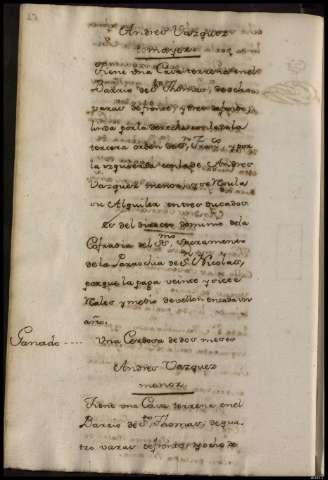 Andres Vazquez
mayor
Tiene una Casa terrena en el
Barrio de Sto Thomas, de
varas de frente, y tres de fondo,
linda por la derecha con la de la
tercera orden de S. Franco y por
la izquierda con la de Andres
Vazquez menor, y se
se Alquilar en tres ducados
Es del directo dominio de la
Cofradia del SSmo Sacramento
de la Parroquia de S. Nicolas,
porque la paga veinte y siete
Reales y medio de vellon en cada un
año.
Ganado .... Una Cerdosa de dos meses
Andres Vazquez
menor
Tiene una Casa terrena en el
Barrio de Sto Thomas, de qua=
tro varas de frente, y ocho de